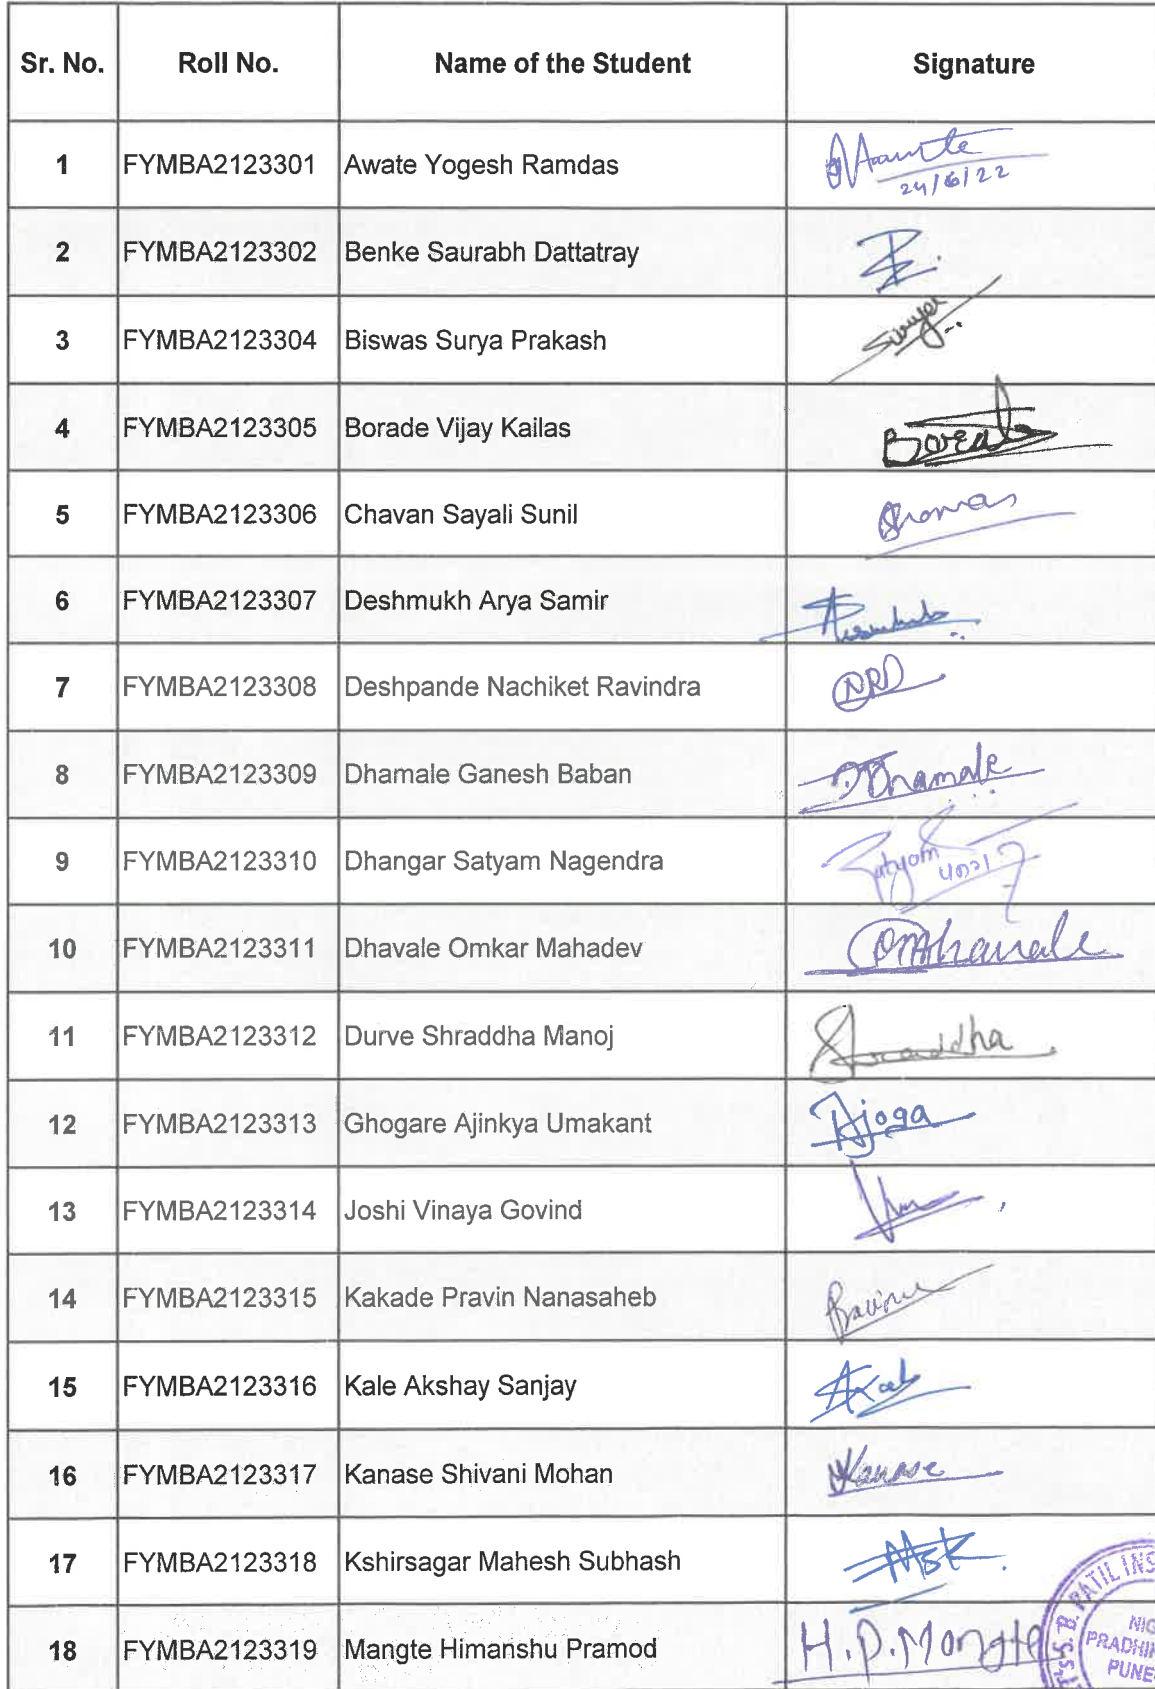 Sr. No. Roll No. Name of the Student Signature
1 FYMBA2123301 Awate Yogesh Ramdas
24/6/22
2 FYMBA2123302 Benke Saurabh Dattatray
3 FYMBA2123304 Biswas Surya Prakash Surya
4 FYMBA2123305 Borade Vijay Kailas
5 FYMBA2123306 Chavan Sayali Sunil
6 FYMBA2123307 Deshmukh Arya Samir
7 FYMBA2123308 Deshpande Nachiket Ravindra NRD
8 FYMBA2123309 Dhamale Ganesh Baban Dhamale
9 FYMBA2123310 Dhangar Satyam Nagendra Satyam
10 FYMBA2123311 Dhavale Omkar Mahadev
11 FYMBA2123312 Durve Shraddha Manoj Shraddha
12 FYMBA2123313 Ghogare Ajinkya Umakant
13 FYMBA2123314 Joshi Vinaya Govind
14 FYMBA2123315 Kakade Pravin Nanasaheb
15 FYMBA2123316 Kale Akshay Sanjay
16 FYMBA2123317 Kanase Shivani Mohan Kanase
17 FYMBA2123318 Kshirsagar Mahesh Subhash MSK
18 FYMBA2123319 Mangte Himanshu Pramod H.P.Mangte
S. B. PATIL INS
NIG
PRADHI
PUNE